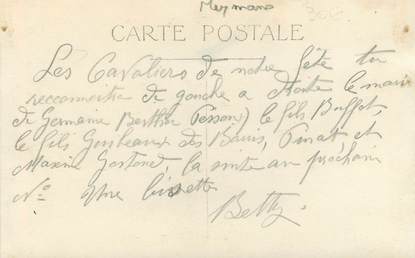 Meymans
300
CARTE POSTALE
Les Cavaliers de notre fête tu
reconnaitra de gauche a droite le mari
de Germaine (Berthe Pesson) le fils Buffet,
le fils des Bains, Pinat et
Maxime la suite au prochain
N° Une bisette
Betty.